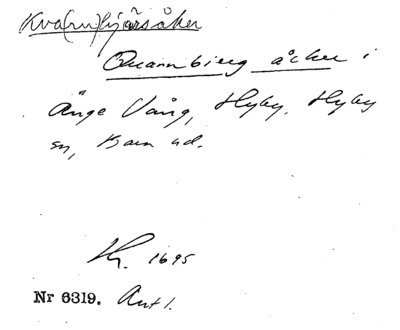 Kva(rn)bjärsåker
Quarnbierg åcker i
Änge Vång, Hyby, Hyby
sn, Bara hd.
Hk. 1695
Nr 6319. Ant 1.